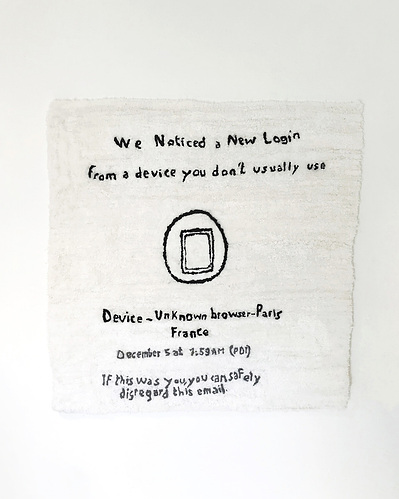 We Noticed a New Login
From a device you don't usually use
Device - Unknown browser - Paris
France
December 5 at 7:59AM (PDT)
If this was you, you can safely
disregard this email.